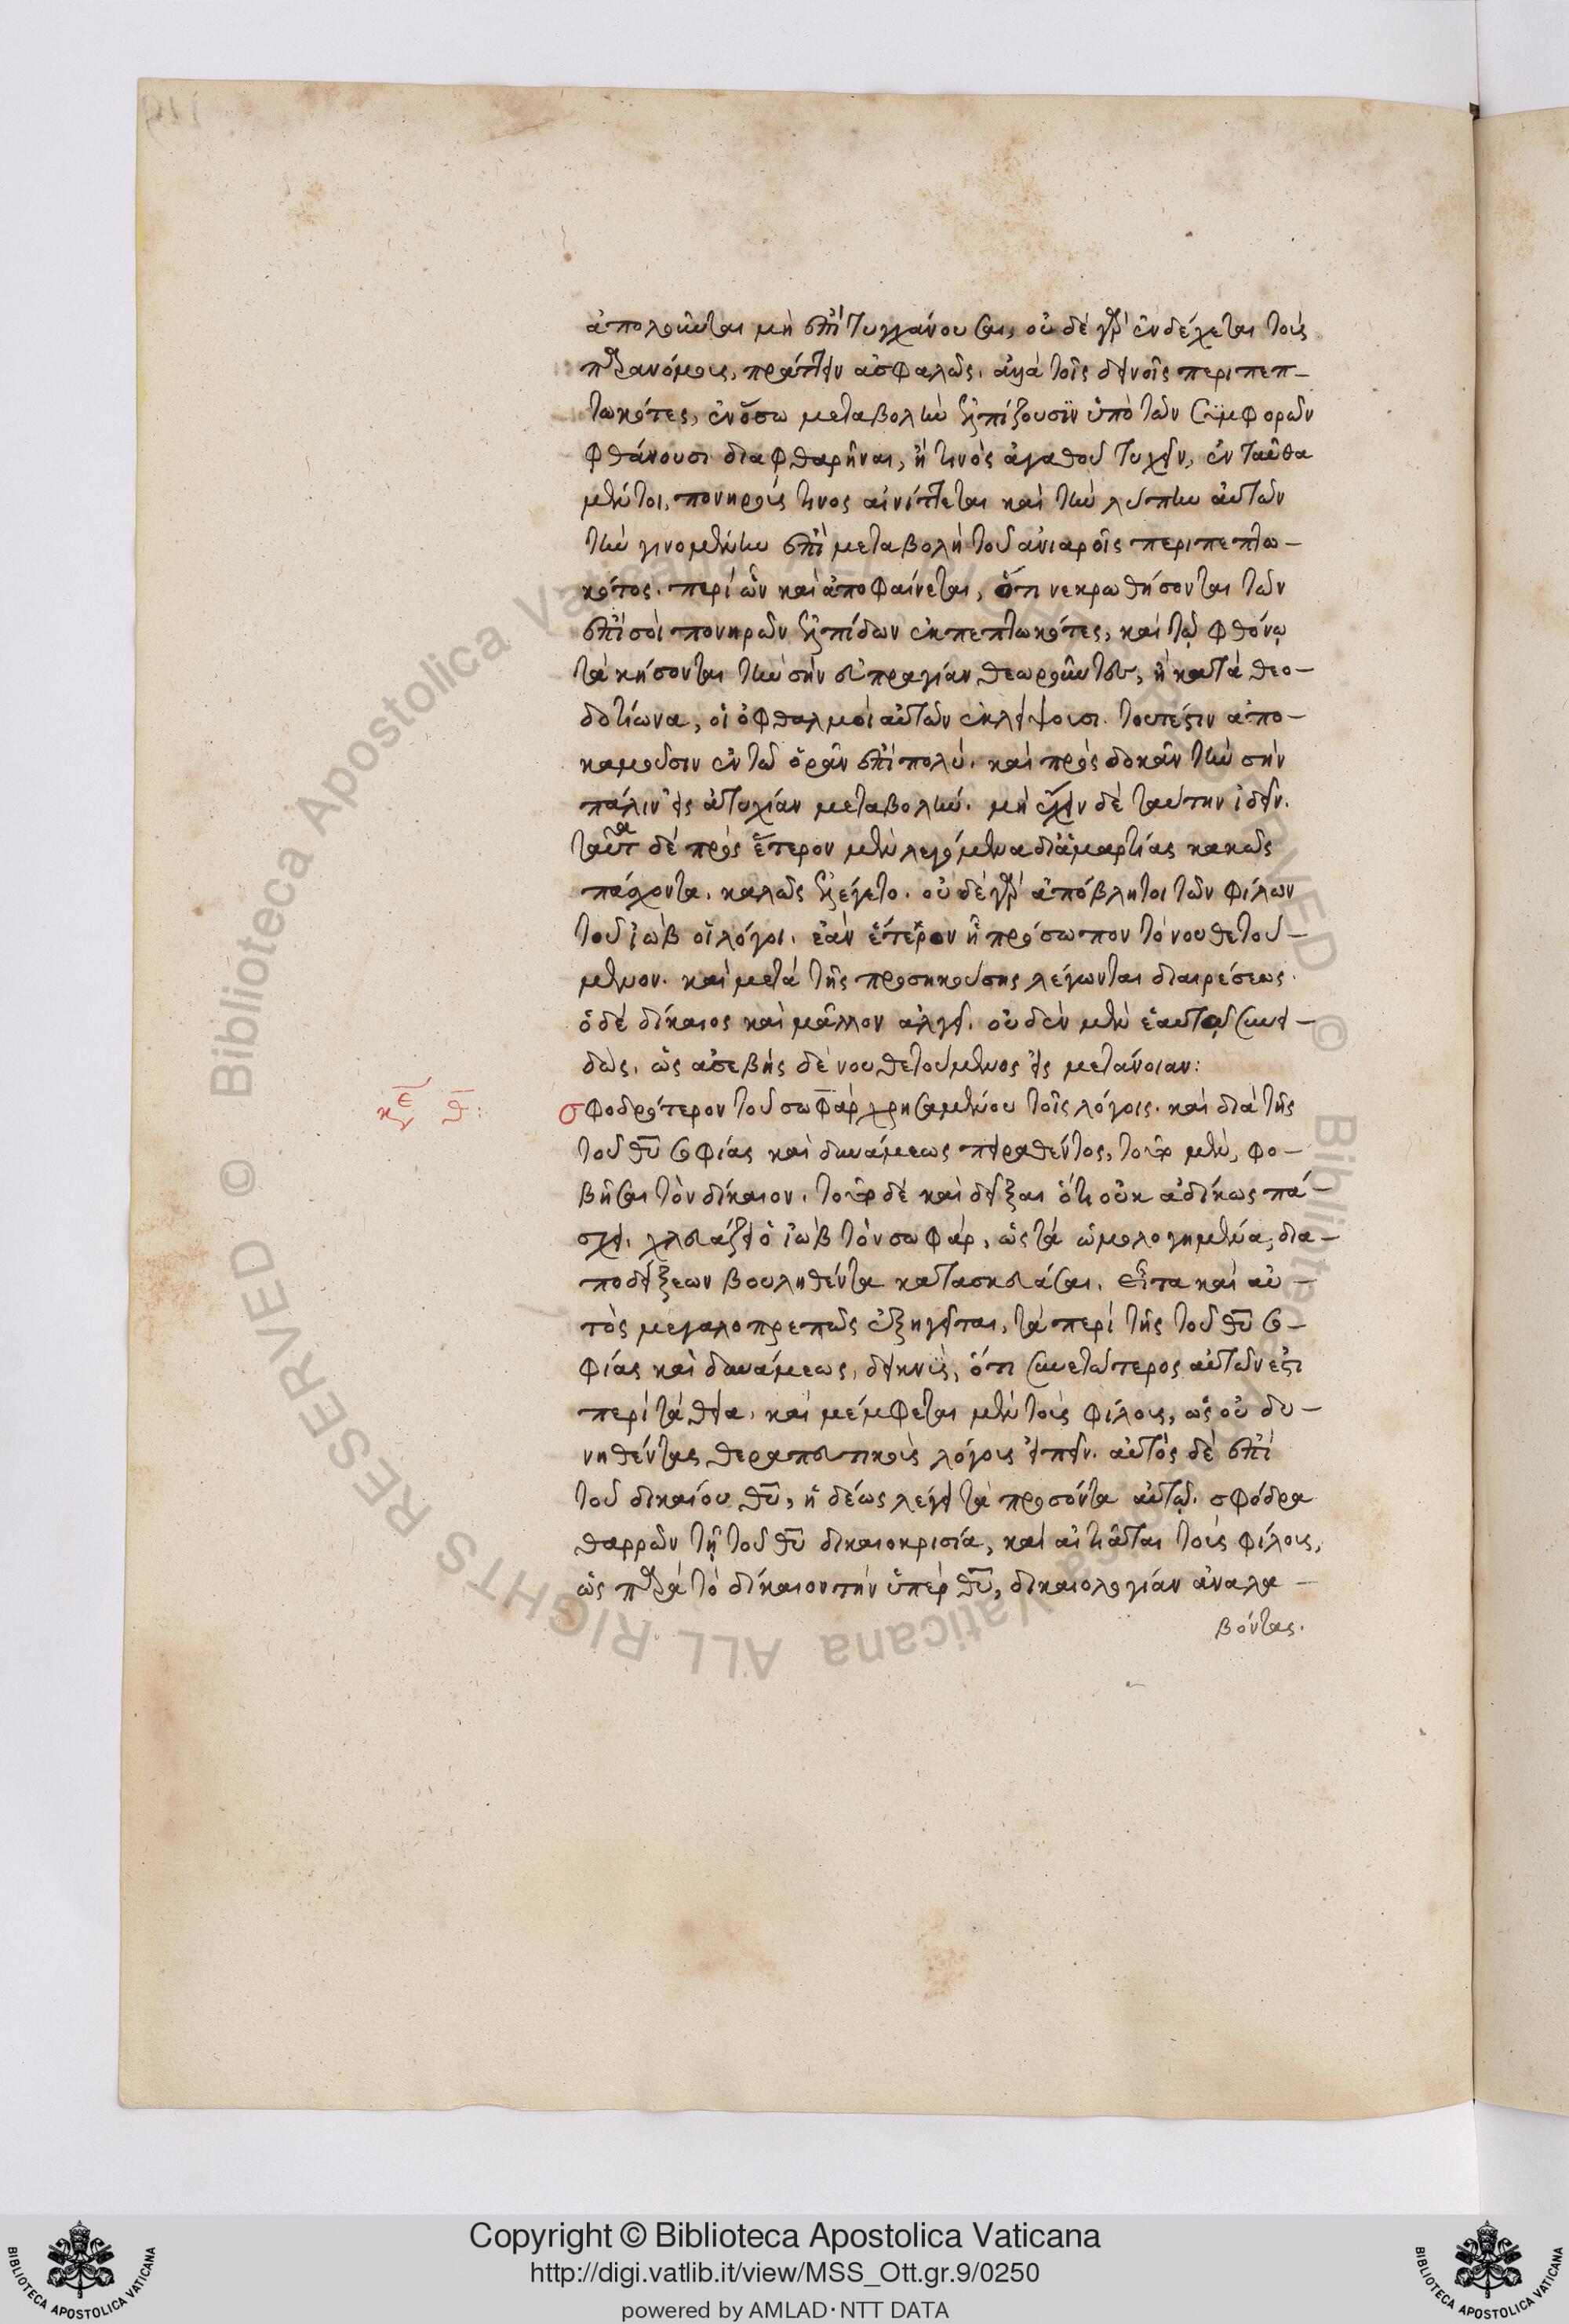 ἀπολοῦνται μὴ ἐπιτυγχάνουσαι, οὐδὲ γὰρ ἐνδέχεται τοὺς
παρανόμους, πράττειν ἀσφαλῶς. ἀλλὰ τοῖς δεινοῖς περιπεπ-
τωκότες, ἐν ὅσω μεταβολὴν ἐλπίζουσϊν ὑπὸ τῶν συμφορῶν
φθάνουσι διαφθαρῆναι, ἤ τινὸς ἀγαθοῦ τυχεῖν, ἐνταῦθα
μέντοι, πονηρούς τινος αἰνίττεται καὶ τὴν λύπην αὐτῶν
τὴν γινομένην ἐπὶ μεταβολῆ τοῦ ἀνιαροῖς περιπεπτω-
κότος. περὶ ὧν καὶ ἀποφαίνεται, ὅτι νεκρωθήσονται τῶν
ἐπὶ σοὶ πονηρῶν ἐλπίδων ἐκπεπτωκότες, καὶ τῷ φθόνῳ
τακήσονται τὴν σὴν εὐπραγίαν θεωροῦντες, ἢ κατὰ θεο-
δοτίωνα, οἱ ὀφθαλμοὶ αὐτῶν ἐκλείψουσι. τουτέστιν ἀπο-
καμοῦσιν ἐν τῶ ὁρᾶν ἐπὶ πολύ. καὶ προσδοκᾶν τὴν σὴν
πάλιν εἰς ἀτυχίαν μεταβολήν. μὴ ἔχειν δὲ ταύτην ἰδεῖν.
ταῦτα δὲ πρὸς ἕτερον μὲν λεγόμενα διἁμαρτίας κακῶς
πάσχοντα, καλῶς ἐλέγετο. οὐδὲ γὰρ ἀπόβλητοι τῶν φίλων
τοῦ ἰὼβ οἱ λόγοι. ἐὰν ἕτερον ᾖ πρόσωπον τὸ νουθετού-
μενον. καὶ μετὰ τῆς προσηκούσης λέγωνται διαιρέσεως.
ὁ δὲ δίκαιος καὶ μᾶλλον ἀλγεῖ. οὐδὲν μὲν ἑαυτῷ συνει-
δὼς, ὡς ἀσεβὴς δὲ νουθετούμενος εἰς μετάνοιαν:
κεφ θ:
σφοδρότερον τοῦ σωφὰρ χρησαμένου τοῖς λόγοις. καὶ διὰ τῆς
τοῦ θυ σοφίας καὶ δυνάμεως πειραθέντος, τοῦτο μὲν, φο-
βῆσαι τὸν δίκαιον. τοῦτο δὲ καὶ δεῖξαι ὅτι οὐκ ἀδίκως πά-
σχει. χλευάζει ὁ ἰὼβ τὸν σωφὰρ, ὡς τὰ ὡμολογημένα, δια-
ποδείξεων βουληθέντα κατασκευάσαι. εἶτα καὶ αὐ-
τὸς μεγαλοπρεπῶς ἐξηγεῖται, τὰ περὶ τῆς τοῦ θυ σο-
φίας καὶ δυνάμεως, δεικνὺς, ὅτι συνετώτερος αὐτῶν ἐστι
περὶ τὰ θεῖα. καὶ μέμφεται μὲν τοὺς φίλους, ὡς οὐ δυ-
νηθέντας θεραπευτικοὺς λόγους εἰπεῖν. αὐτὸς δὲ ἐπὶ
τοῦ δικαίου θυ, ἡδέως λέγει τὰ προσόντα αὐτῷ. σφόδρα
θαρρῶν τῇ τοῦ θυ δικαιοκρισία, καὶ αἰτιᾶται τοὺς φίλους,
ὡς παρὰ τὸ δίκαιον τὴν ὑπὲρ θυ, δικαιολογίαν ἀναλα-
βόντας.
Copyright © Biblioteca Apostolica Vaticana
http://digi.vatlib.it/view/MSS_Ott.gr.9/0250
powered by AMLAD·NTT DATA